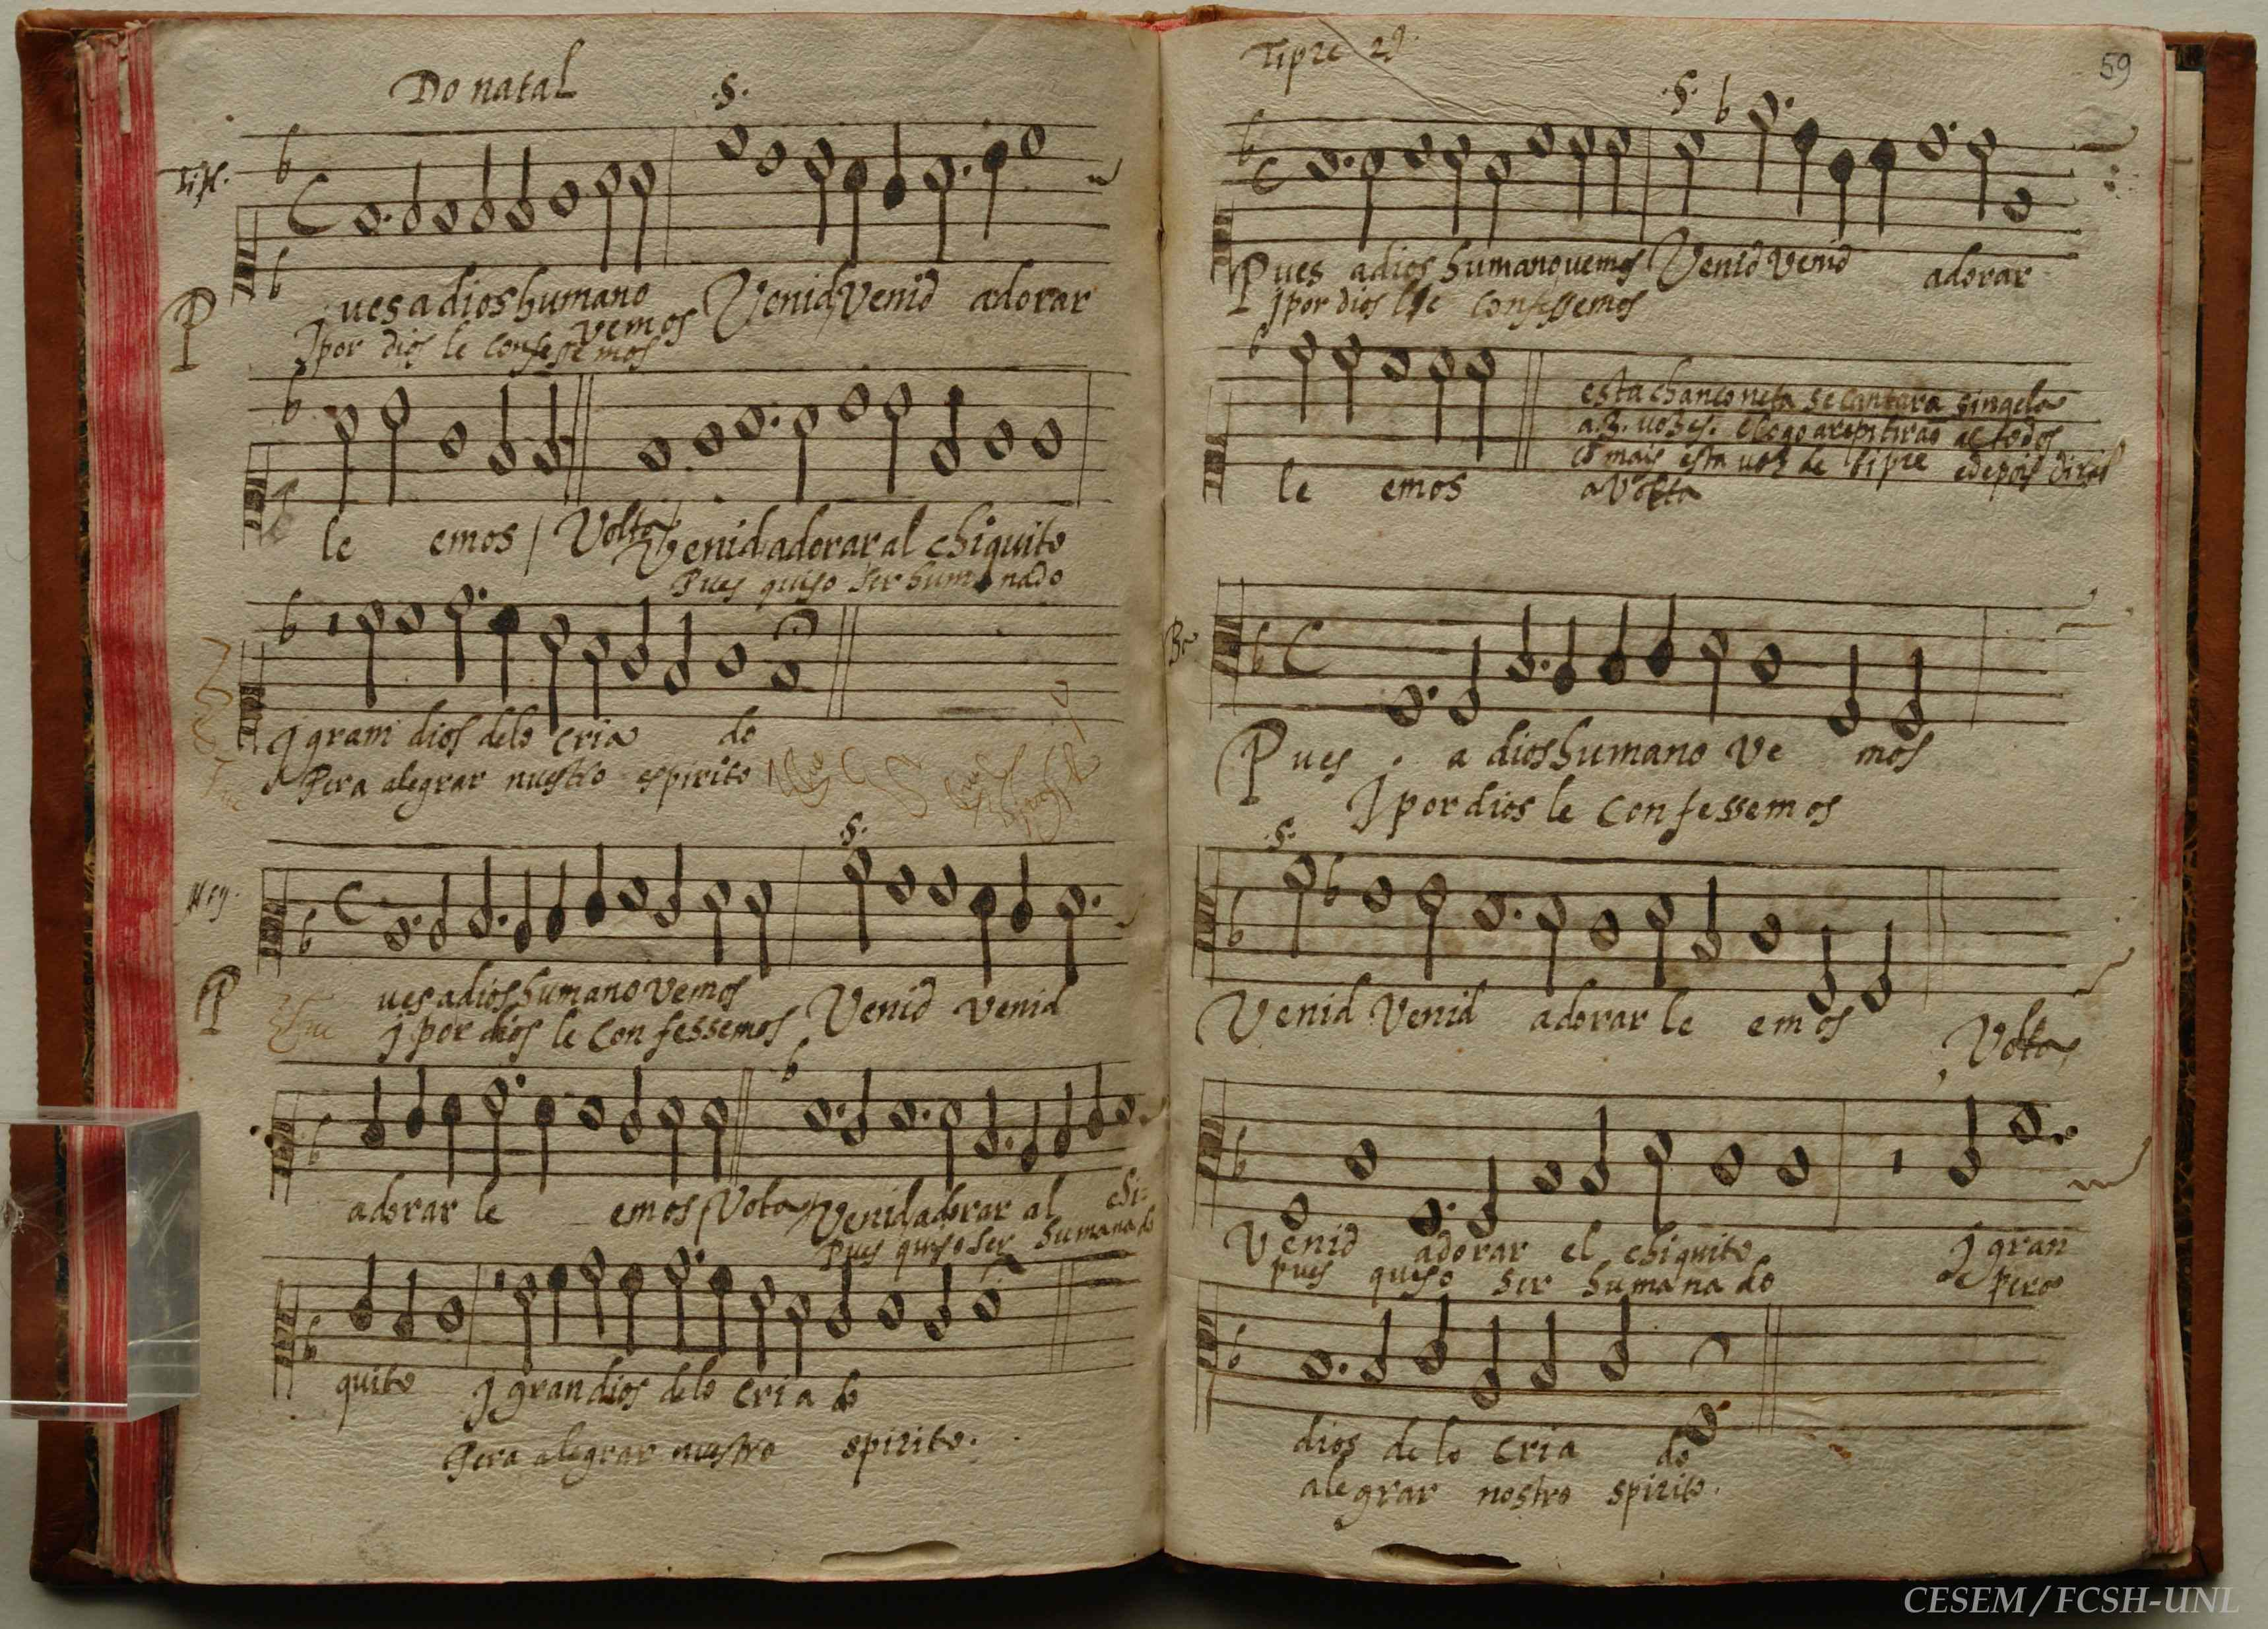 Do natal
.S.
Pues a dios humano vemos Venid Venid adorar
J por dios le confessemos
le emos / Volta / Venid adorar al chiquito
Pues quiso ser humanado
J gram dios de lo criado
Pera alegrar nuestro espirito
.S.
Pues a dios humano vemos Venid venid
J por dios le confessemos
adorar le emos / Volta / Venid adorar al chi=
Pues quiso ser humanado
quito J gran dios de lo criado
Pera alegrar nuestro spirito.
Tiple 2º
59
.S.
Pues a dios humano vemos Venid Venid adorar
J por dios le confessemos
le emos
esta chançoneta se cantara singela
a 3. vozes. e logo a repitirão aº todos
cõ mais esta voz de tipre e depois dirão
a Volta
Pues a dios humano Vemos
J por dios le Confessemos
.S.
Venid Venid adorar le emos
Volta
Venid adorar el chiquito J gran
pues quiso ser humanado pera
dios de lo criado
alegrar nostro spirito.
CESEM / FCSH-UNL